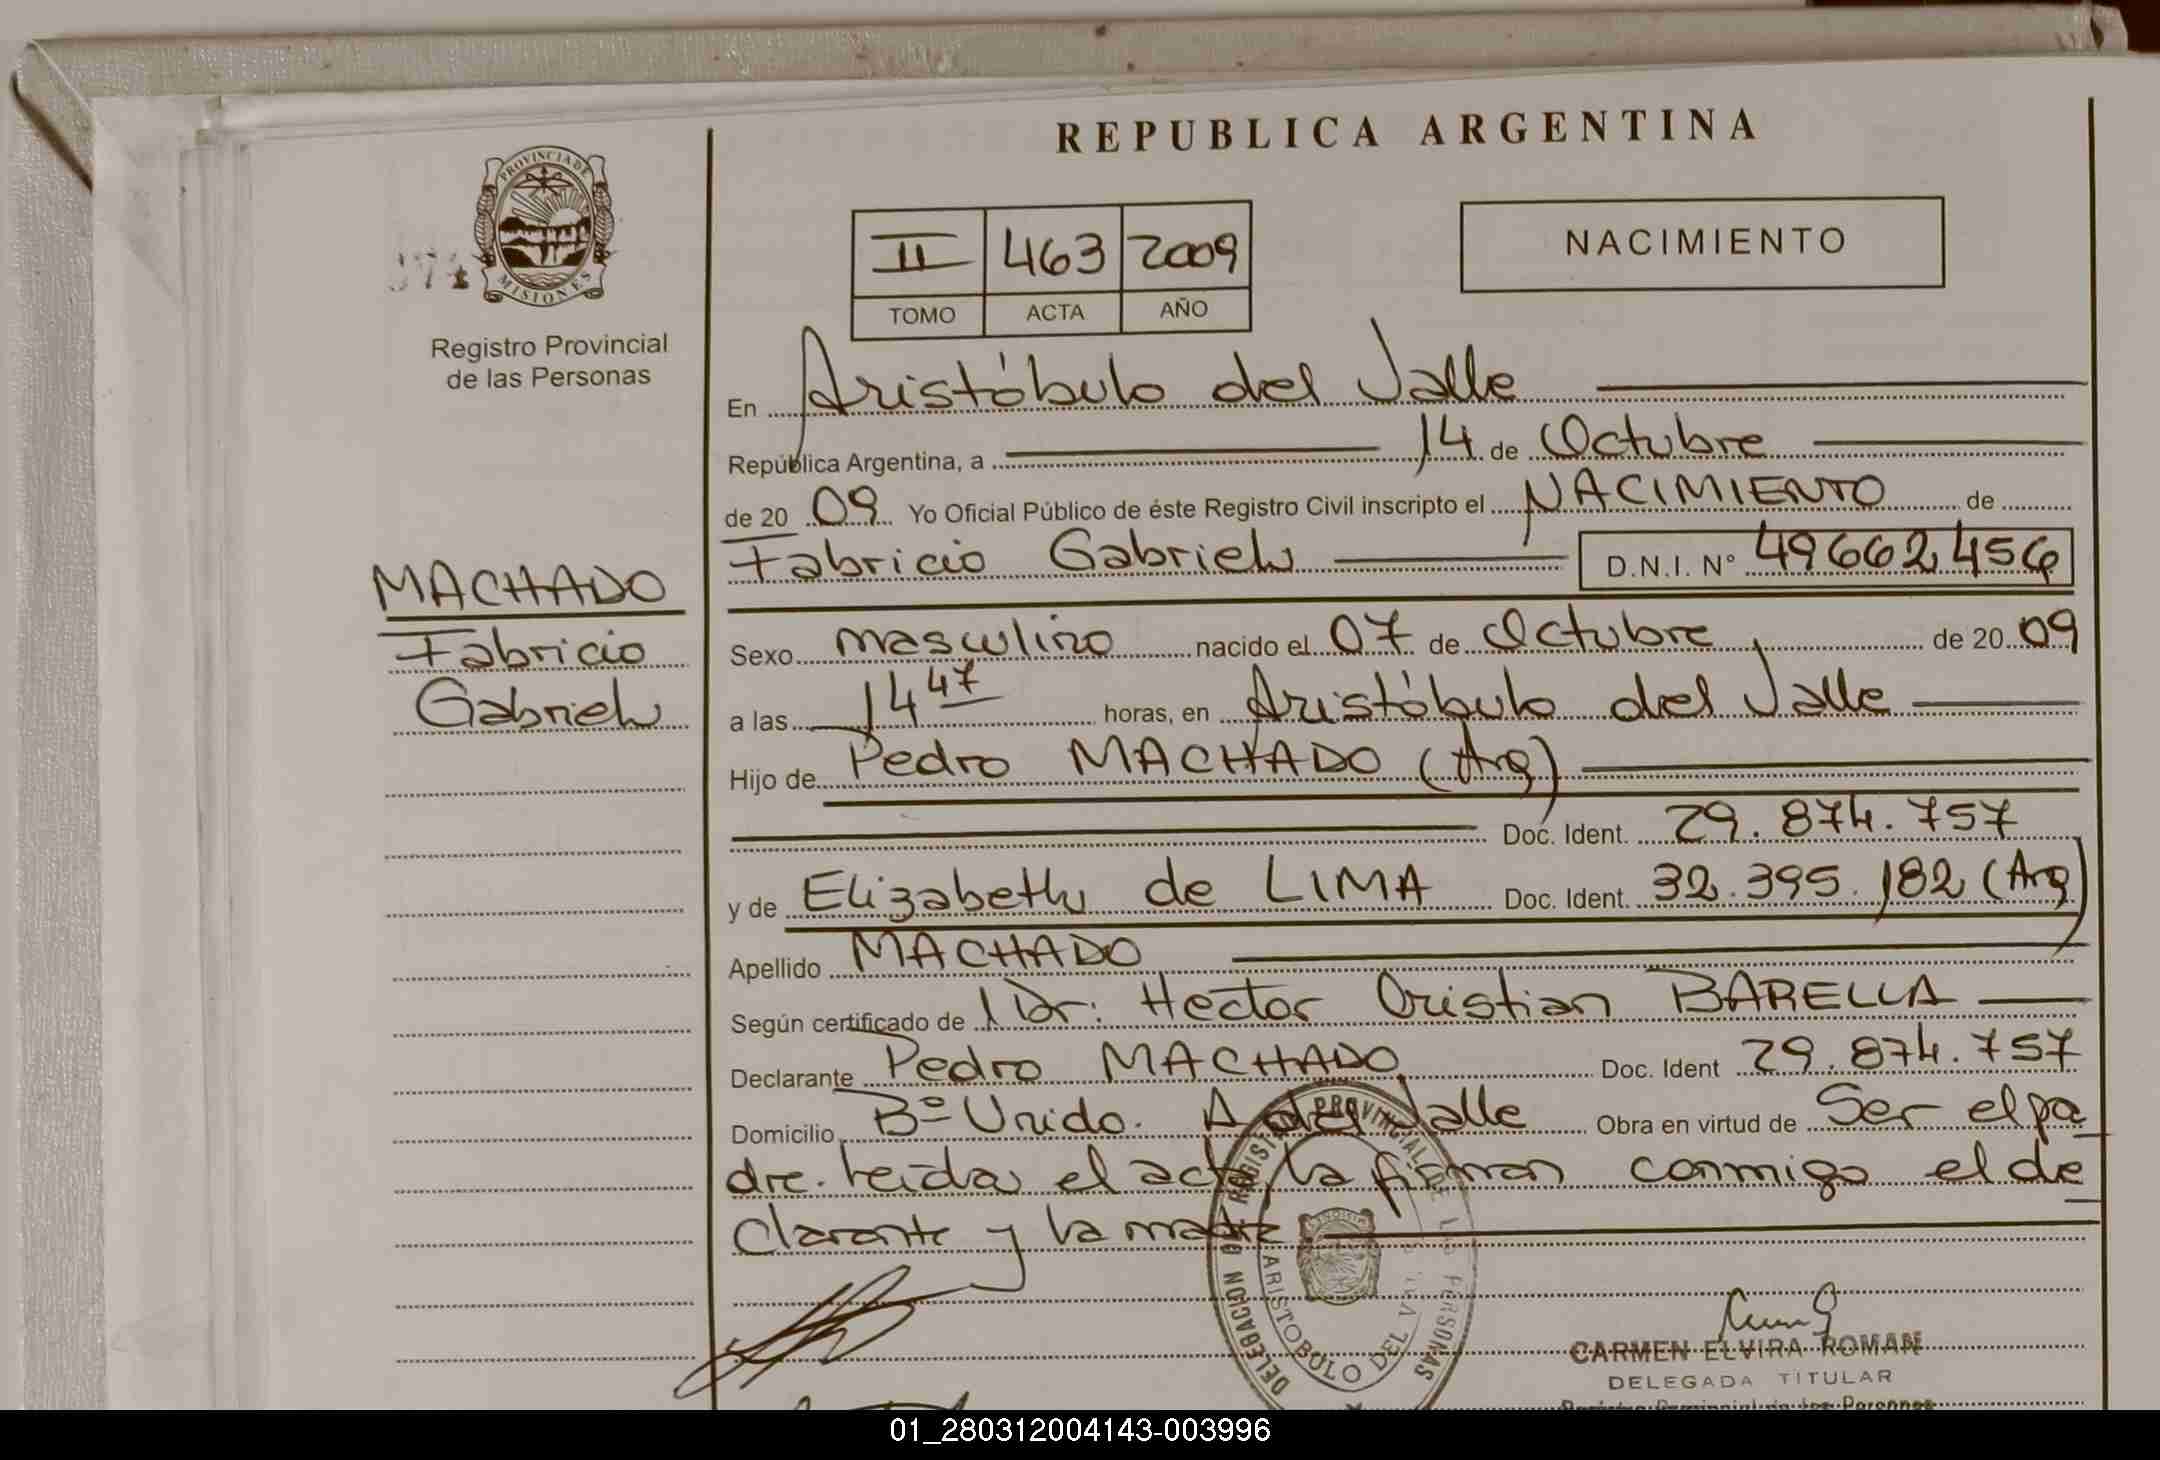 REPUBLICA ARGENTINA
PROVINCIA DE
MISIONES
Registro Provincial
de las Personas
II 463 2009
TOMO ACTA AÑO
NACIMIENTO
En Aristóbulo del Valle
República Argentina, a 14 de Octubre
de 20 09 Yo Oficial Público de éste Registro Civil inscripto el NACIMIENTO de
Fabricio Gabriel D.N.I. Nº 49662456
MACHADO
Fabricio
Gabriel
Sexo masculino nacido el 07 de Octubre de 20 09
a las 14 47 horas, en Aristóbulo del Valle
Hijo de Pedro MACHADO (Arg)
Doc. Ident. 29.874.757
y de Elizabeth de LIMA Doc. Ident. 32.395.182 (Arg)
Apellido MACHADO
Según certificado de Dr: Hector Cristian BARELLA
Declarante Pedro MACHADO Doc. Ident 29.874.757
Domicilio Bº Unido. A del Valle Obra en virtud de Ser el pa
dre. Leida el acta, la firman conmigo el de
clarante y la madre
DELEGACION REGISTRO PROVINCIAL DE LAS PERSONAS
ARISTOBULO DEL VALLE
CARMEN ELVIRA ROMAN
DELEGADA TITULAR
Registro Provincial de las Personas
01_280312004143-003996